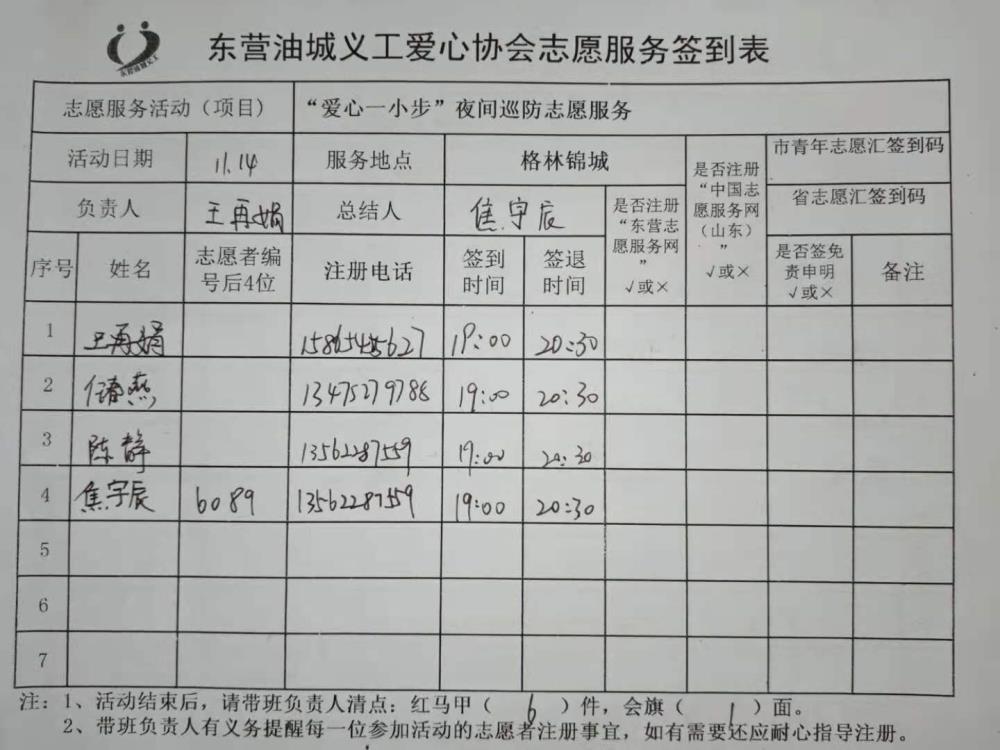 东营油城义工
东营油城义工爱心协会志愿服务签到表
志愿服务活动（项目） “爱心一小步”夜间巡防志愿服务
活动日期 11.14 服务地点 格林锦城 是否注册“中国志愿服务网（山东）” √或× 市青年志愿汇签到码
负责人 王再娟 总结人 焦宇辰 是否注册“东营志愿服务网” √或× 省志愿汇签到码
序号 姓名 志愿者编号后4位 注册电话 签到时间 签退时间 是否签免责申明 √或× 备注
1 王再娟 19:00 20:30
2 任春燕 13475279788 19:00 20:30
3 陈静 13562287559 19:00 20:30
4 焦宇辰 6089 13562287559 19:00 20:30
5
6
7
注：1、活动结束后，请带班负责人清点：红马甲（ 6 ）件，会旗（ 1 ）面。
2、带班负责人有义务提醒每一位参加活动的志愿者注册事宜，如有需要还应耐心指导注册。